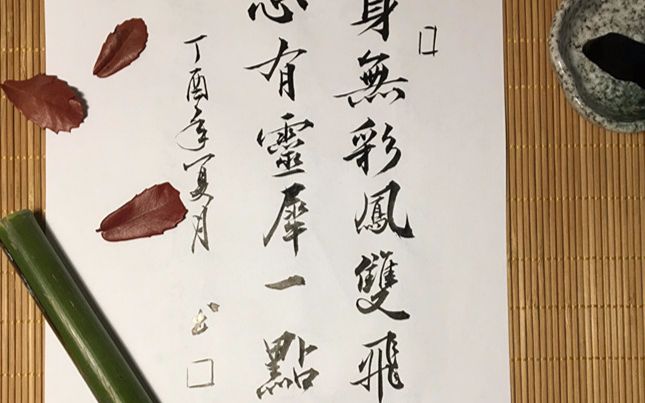 身無彩鳳雙飛
心有靈犀一點
丁酉年夏月 书